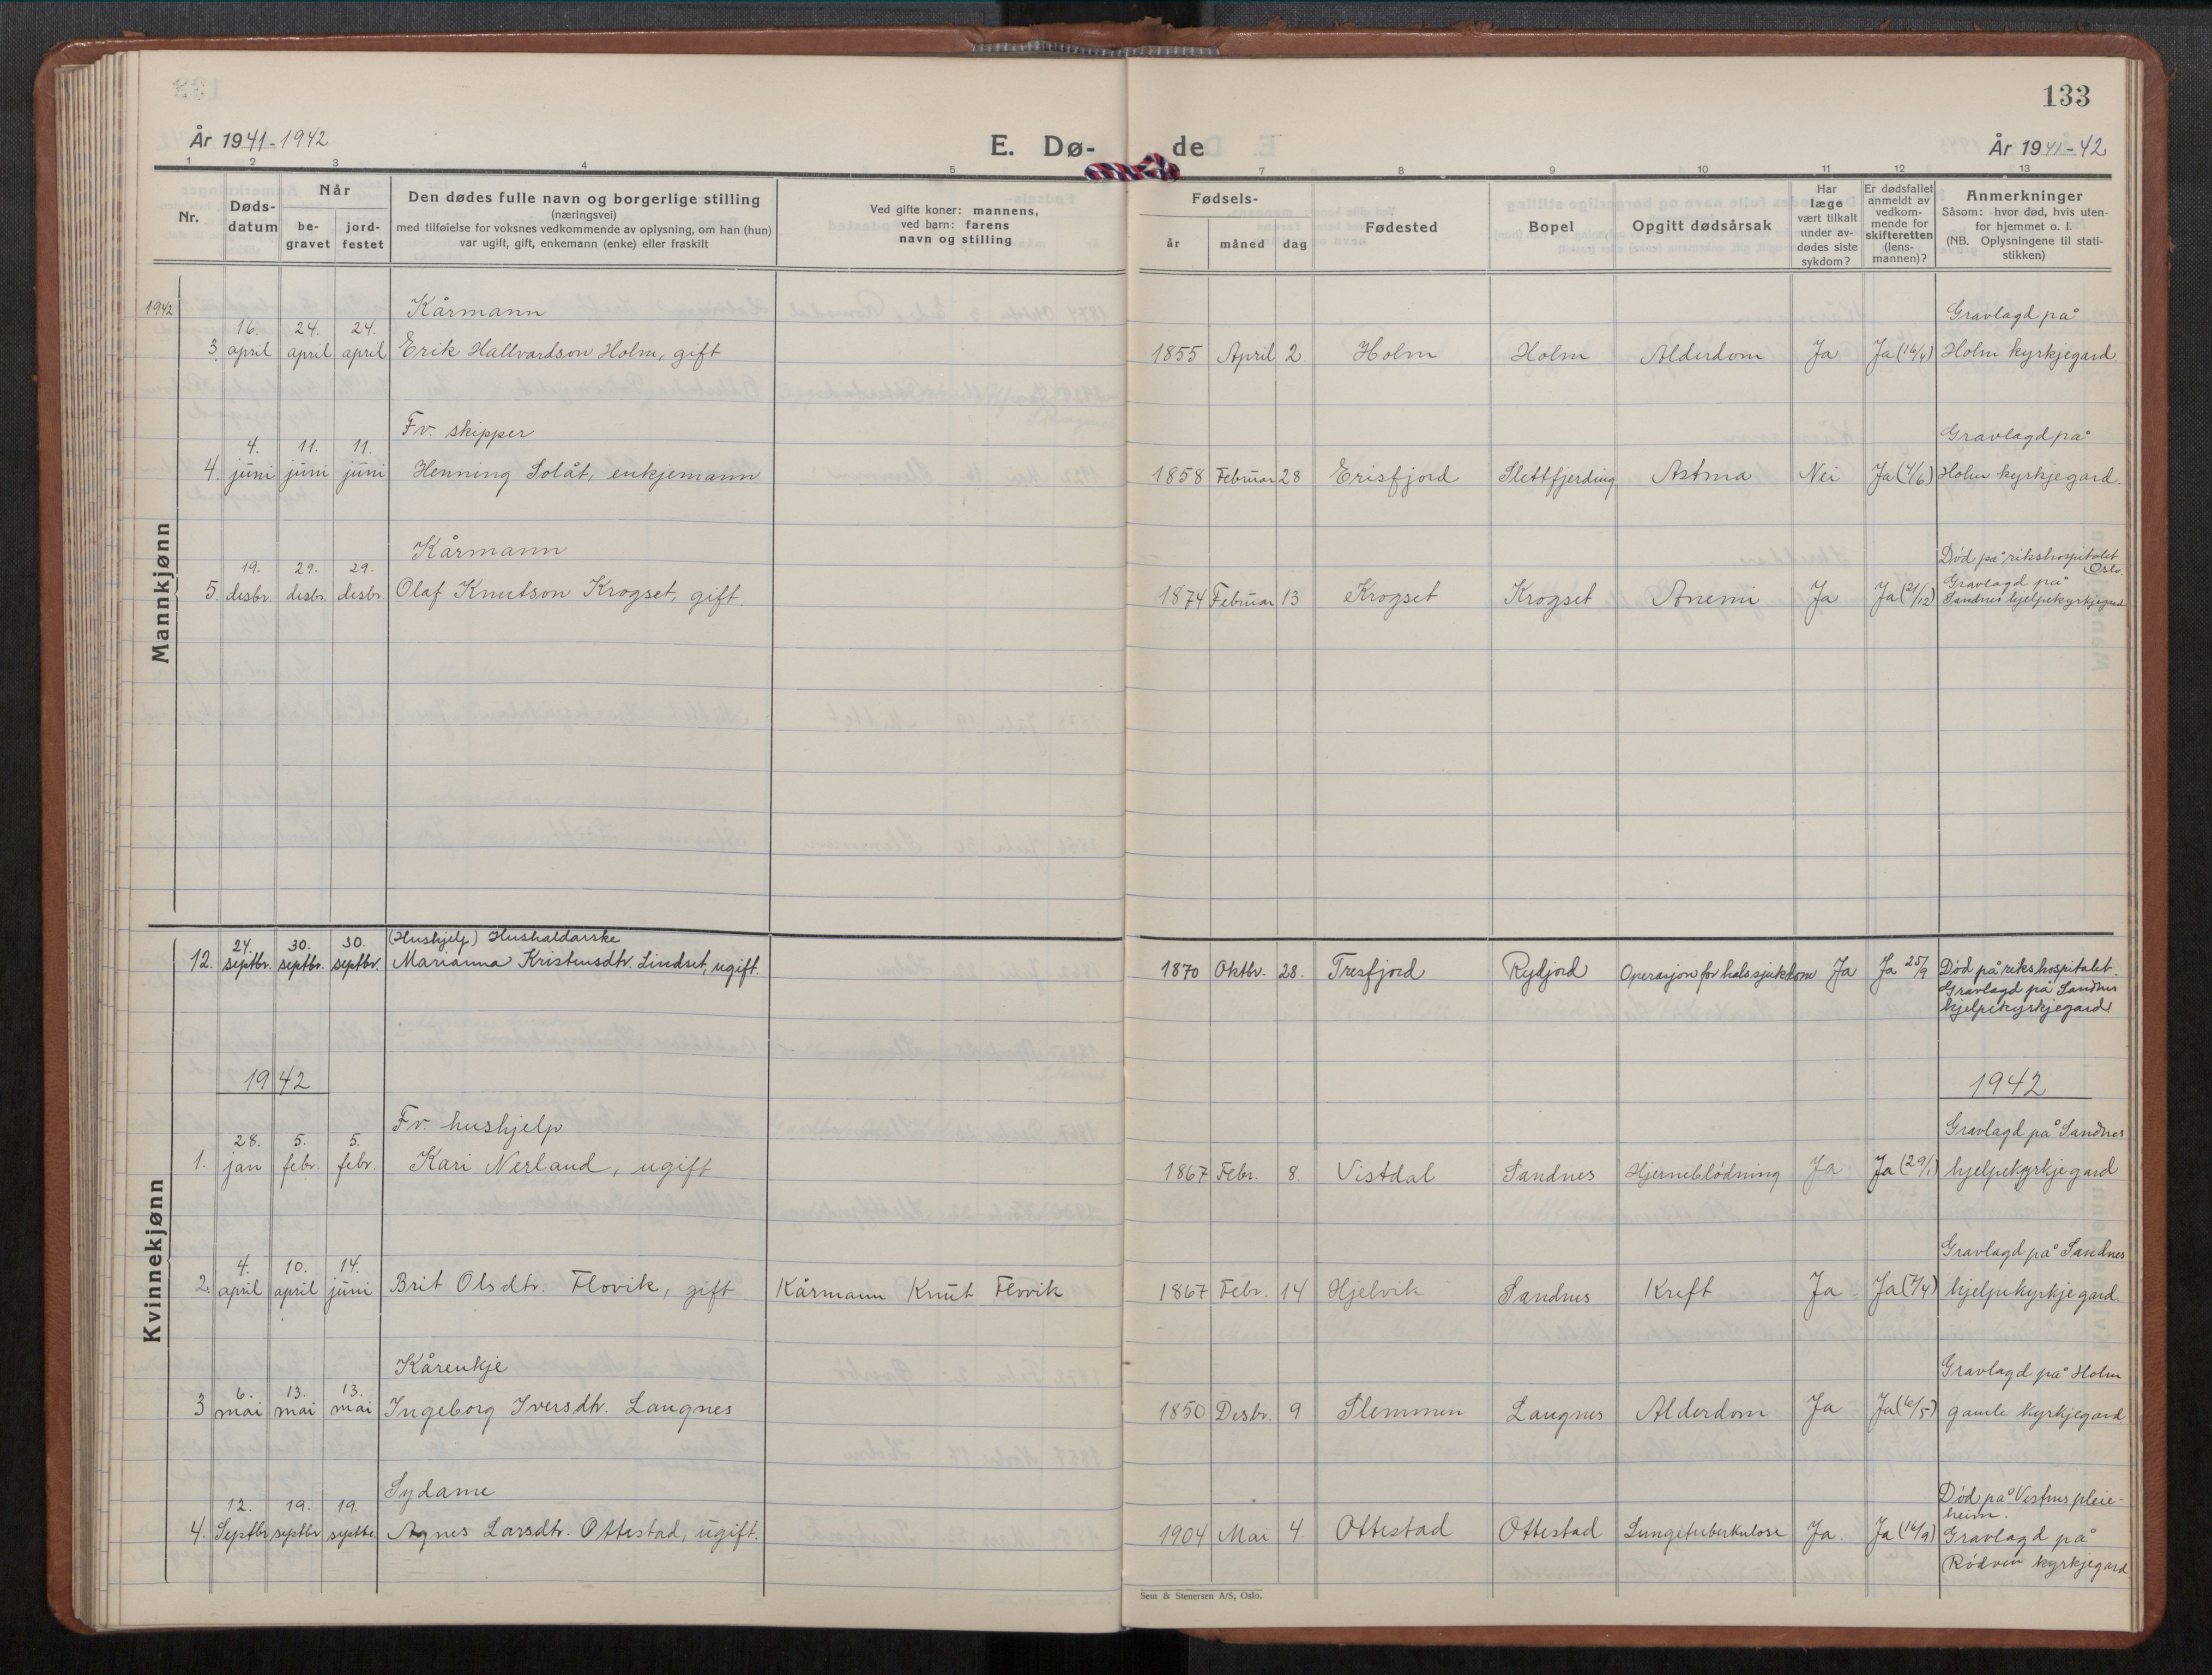 133
År 1941-1942
E. Dø-
de
År 1941-42
1 2 3 4 5 7 8 9 10 11 12 13
Nr.
Døds-
datum
Når
be-
gravet
jord-
festet
Den dødes fulle navn og borgerlige stilling
(næringsvei)
med tilføielse for voksnes vedkommende av oplysning, om han (hun)
var ugift, gift, enkemann (enke) eller fraskilt
Ved gifte koner: mannens,
ved barn: farens
navn og stilling
Fødsels-
år
måned
dag
Fødested
Bopel
Opgitt dødsårsak
Har
læge
vært tilkalt
under av-
dødes siste
sykdom?
Er dødsfallet
anmeldt av
vedkom-
mende for
skifteretten
(lens-
mannen)?
Anmerkninger
Såsom: hvor død, hvis uten-
for hjemmet o. l.
(NB. Oplysningene til stati-
stikken)
Mannkjønn
1942
Kårmann
Gravlagd på
16. 24. 24.
3. april april april Erik Hallvardson Holm, gift 1855 April 2. Holm Holm Alderdom Ja Ja (16/4) Holm kyrkjegard
Fv. skipper
Gravlagd på
4. 11. 11.
4. juni juni juni Henning Solåt, enkjemann 1858 Februar 28 Erisfjord Slettfjerding Astma Nei Ja (4/6) Holm kyrkjegard.
Kårmann
Død på rikshospitalet
Oslo.
19. 29. 29.
Gravlagd på
5. desbr. desbr. desbr. Olaf Knutson Krogset, gift. 1874 Februar 13 Krogset Krogset Anemi Ja Ja (21/12) Sandnes hjelpekyrkjegard
Kvinnekjønn
24. 30. 30. (Hushjelp) Hushaldarske
12. septbr. septbr. septbr. Marianna Kristensdtr. Lindset, ugift. 1870 Oktbr. 28. Tresfjord Rydjord Operasjon for halssjukdom Ja Ja 25/9 Død på rikshospitalet.
Gravlagd på Sandnes
hjelpekyrkjegard
1942
1942
Fv. hushjelp
Gravlagd på Sandnes
28. 5. 5.
1. jan febr. febr. Kari Nerland, ugift 1867 Febr. 8. Vistdal Sandnes Hjerneblødning Ja Ja (29/1) hjelpekyrkjegard
Gravlagd på Sandnes
4. 10. 14.
2. april april juni Brit Olsdtr. Flovik, gift Kårmann Knut Flovik 1867 Febr. 14 Hjelvik Sandnes Kreft Ja Ja (7/4) hjelpekyrkjegard.
Kårenkje
Gravlagd på Holm
6. 13. 13.
3 mai mai mai Ingeborg Iversdtr. Langnes 1850 Desbr. 9 Slemmen Langnes Alderdom Ja Ja (6/5) gamle kyrkjegard
Sydame
Død på Vestnes pleie-
heim.
12. 19. 19.
4. Septbr. septbr septbr. Agnes Larsdtr. Ottestad, ugift. 1904 Mai 4. Ottestad Ottestad Lungetuberkulose Ja. Ja (16/9) Gravlagd på
Rødven kyrkjegard.
Sem & Stenersen A/S, Oslo.